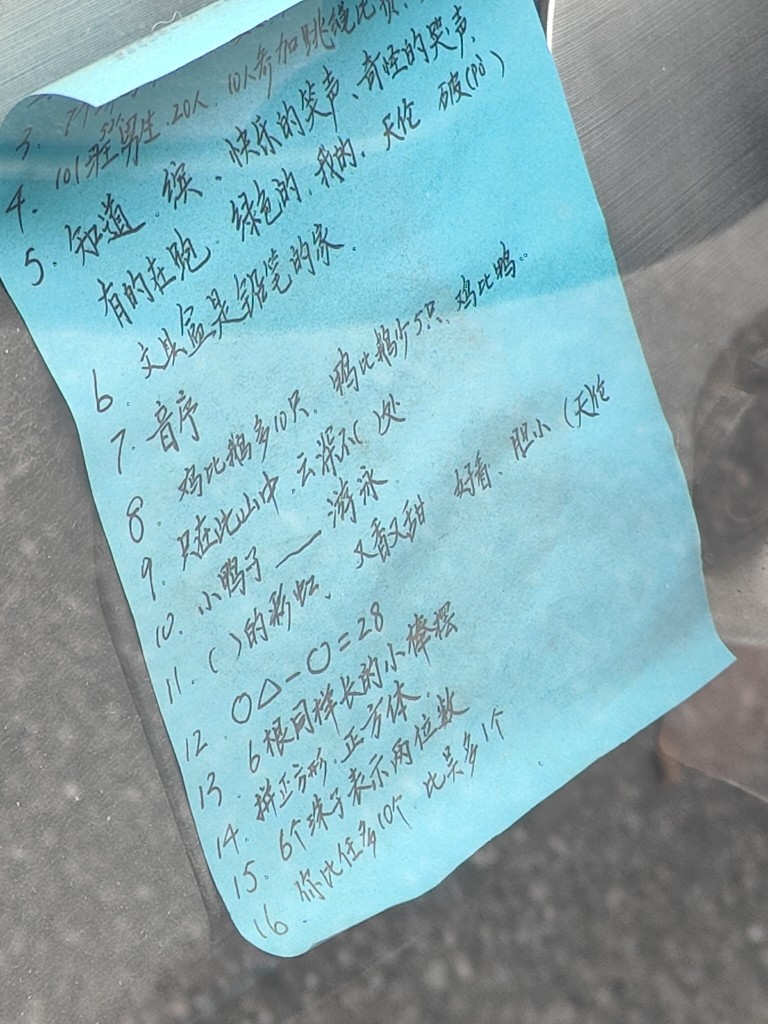 3.
4. 101 男生.20人.10人参加跳绳比赛.
5. 知道 缤、快乐的笑声、奇怪的笑声.
有的在跑 绿色的、我的、天伦 破(pò)
6. 文具盒是铅笔的家.
7. 音序
8. 鸡比鹅多10只, 鸭比鹅少5只, 鸡比鸭..
9. 只在此山中 云深不( )处
10. 小鸭子——游泳
11. ( )的彩虹、又香又甜 好看、胆小 (天)伦
12. ○△-○=28
13. 6根同样长的小棒摆
14. 拼正方形,正方体.
15. 6个珠子表示两位数
16. 你比任多10个 比吴多1个